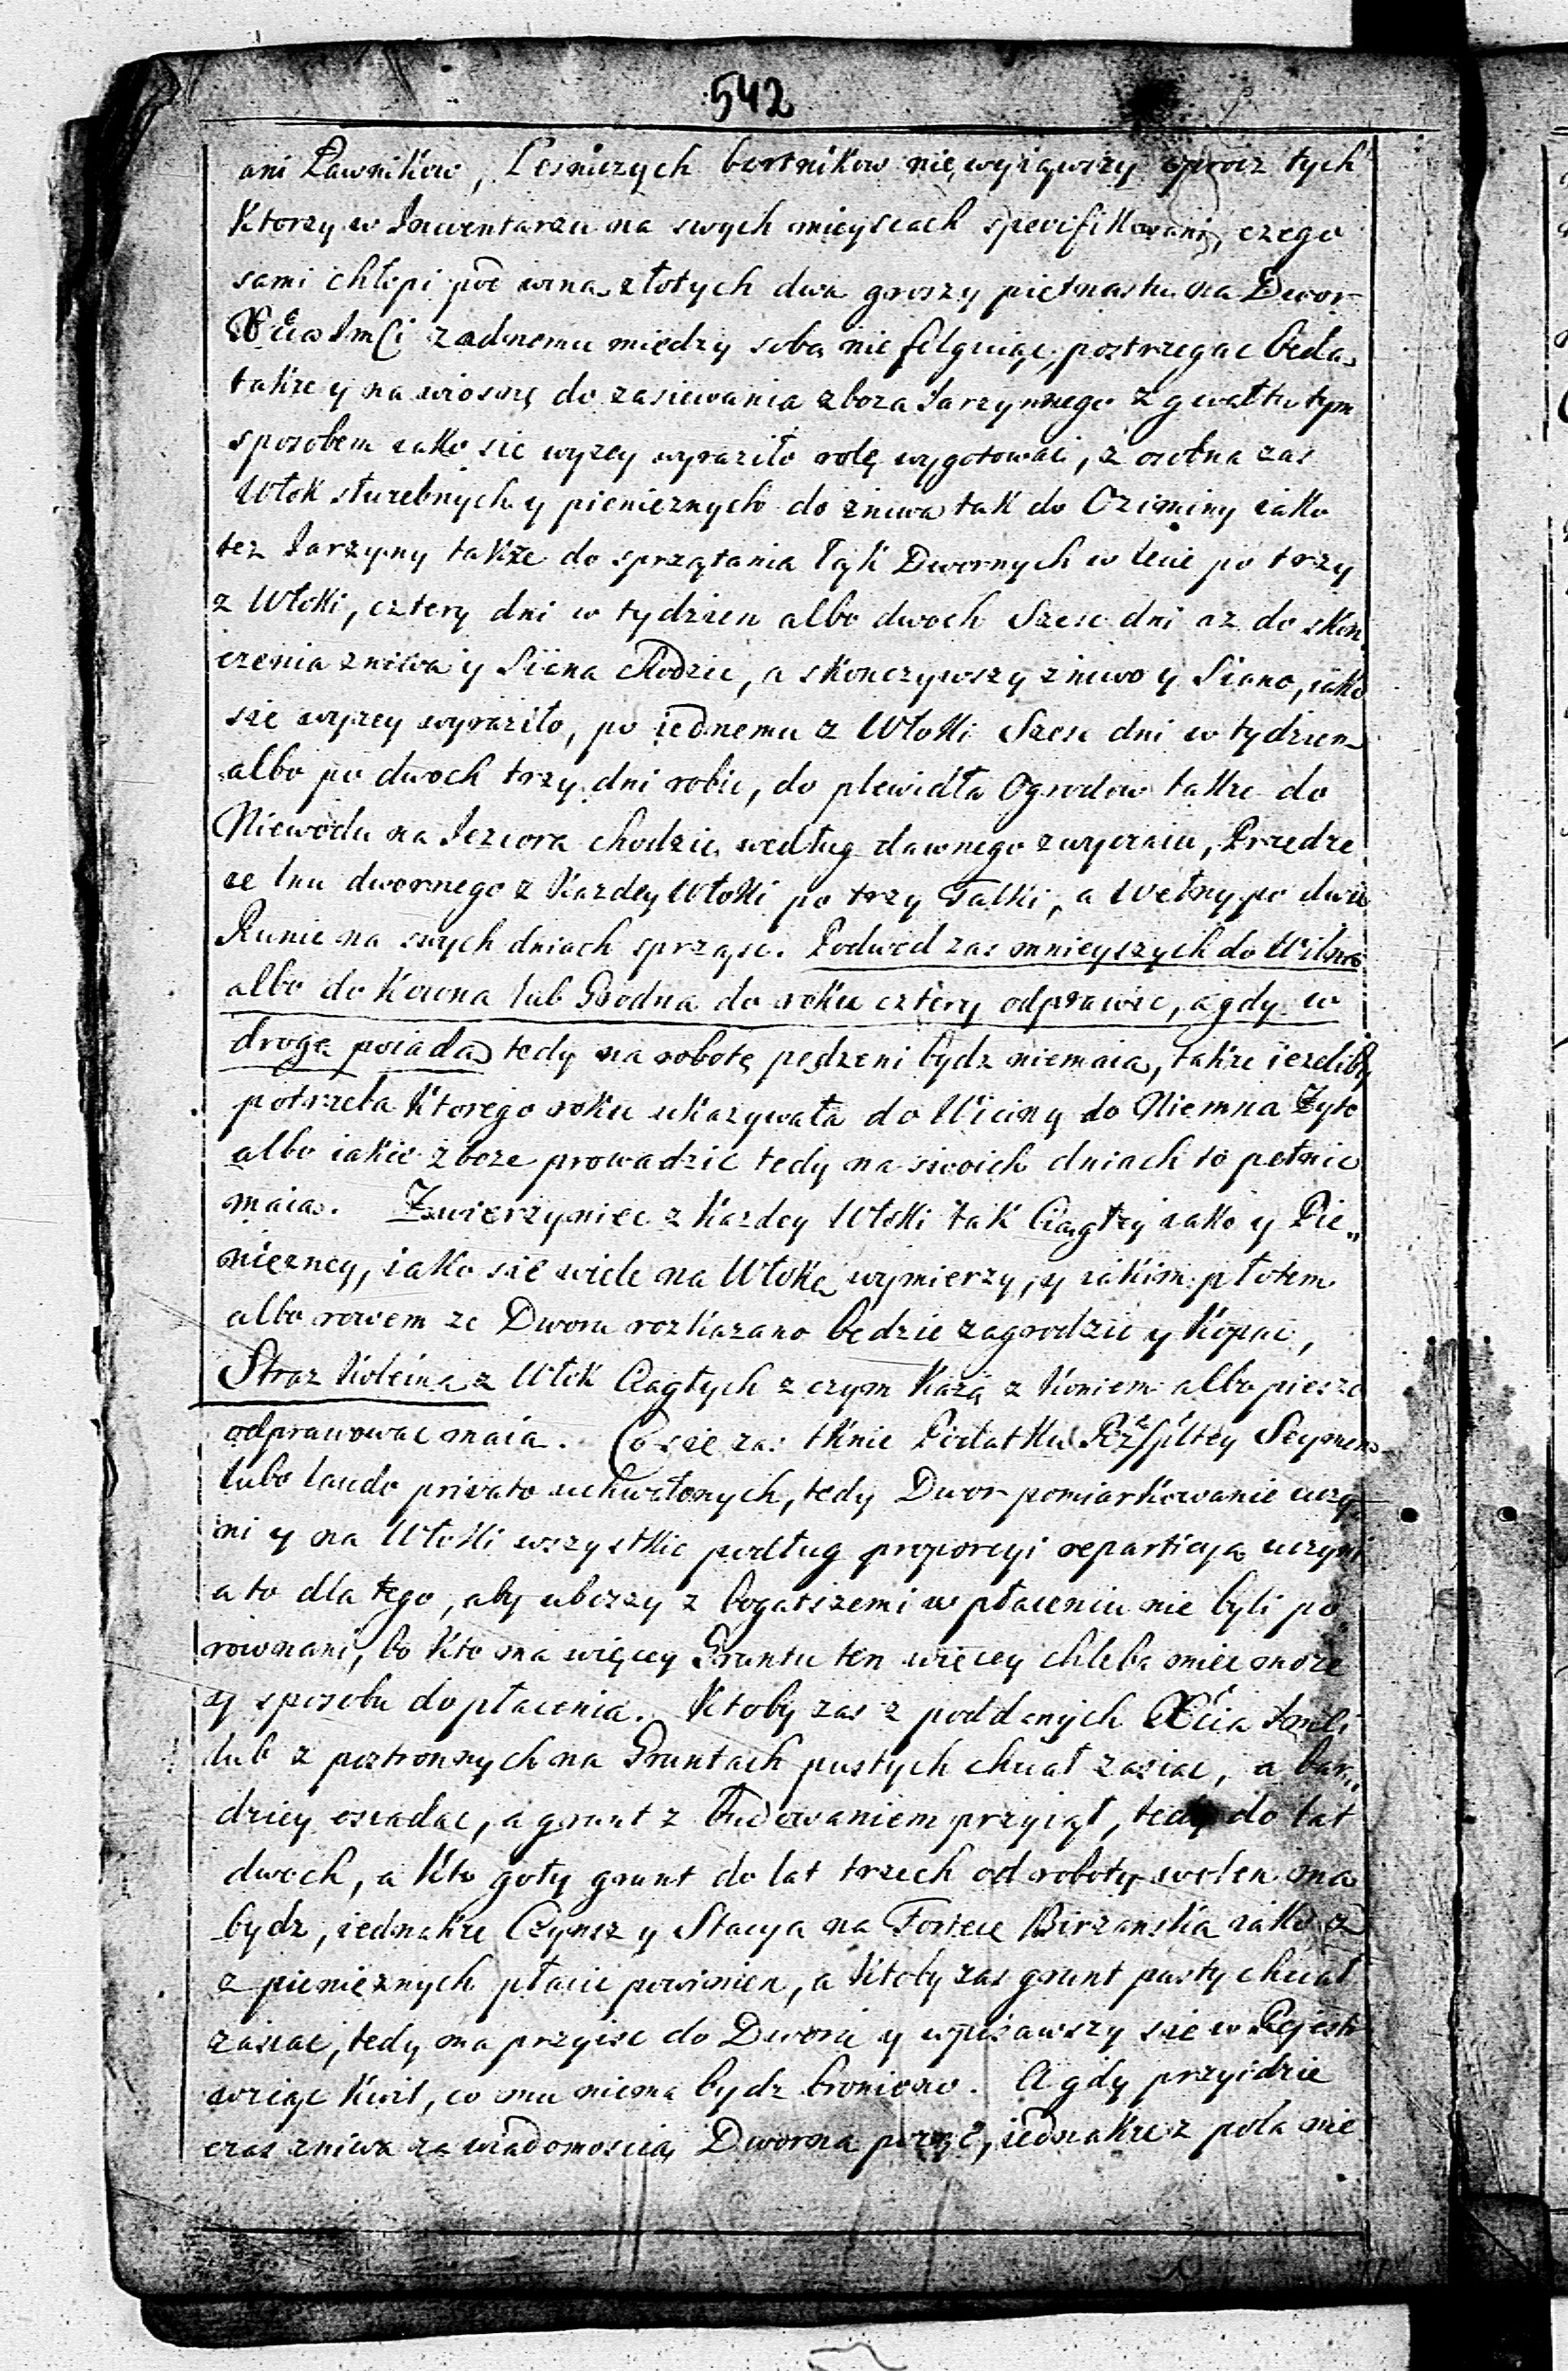 542
ani Ławnikow, Lesniczych bortnikow nie wyiąwszy oprocz tych
Ktorzy w Inwentarzu na swych mieyscach specifikowani, czego
sami chłopi pod wina złotych dwa groszy pietnastu na Dwor
XCia ImCi zadnemu miedzy soba nie folguiąc, postrzegac beda,
takze y na wiosnę do zasiewania zboza Jarzynnego z gwałtu tym
sposobem iako sie wyzey wyraziło rolę wygotowac, z osobna zas
Włok słuzebnych y pienieznych do zniwa tak do Oziminy iako
tez Jarzyny takze do sprzątania Łąk Dwornych w lecie po trzy
z Włoki, cztery dni w tydzien albo dwoch Szesc dni az do skon
czenia zniwa y Siana chodzic, a skonczywszy zniwo y Siano, iako
sie wyzey wyraziło, po iednemu z Włoki Szesc dni w tydzien
albo po dwoch trzy dni robic, do plewidła Ogrodow takze do
Niewodu na Jeziora chodzic według dawnego zwyczaiu, Przedze
ze lnu dwornego z Kazdey Włoki po trzy Talki, a Wełny po dwie
Runie na swych dniach sprząsc. Podwod zas mnieyszych do Wilna
albo do Kowna lub Grodna do roku cztery odprawic, a gdy w
drogę poiada tedy na robotę pędzeni bydz niemaia, takze iezeliby
potrzeba Ktorego roku ukazywała do Wiciny do Niemna Zyto
albo iakie zboze prowadzic tedy na swoich dniach to pełnic
maia. Zwierzyniec z Kazdey Włoki tak Ciagłey iako y Pie„
niezney, iako sie wiele na Włoke wymierzy, y iakim płotem
albo rowem ze Dworu rozkazano bedzie zagrodzic y Kopac,
Straz Koleina z Włok Ciagłych z czym Kazą z Koniem albo pieszo
odprawowac maia. Co sie zas tknie Podatku Rzplitey Seymem
lubo laudo privato uchwalonych, tedy Dwor pomiarkowanie uczy„
ni y na Włoki wszystkie podług proporcyi reparticya uczyni
a to dla tego, aby ubozszy z bogatszemi w płaceniu nie byli po
rownani, bo Kto ma więcey Gruntu ten więcey chleba miec moze
y sposobu do płacenia. Ktoby zas z poddanych XCia ImCi
lub z postronnych na Gruntach pustych chciał zasiac, a bar„
dziey osiadac, a grunt z budowaniem przyiął, tedy do lat
dwoch, a Kto goły grunt do lat trzech od roboty wolen ma
bydz, iednakze Czynsz y Stacya na Fortece Birzanska iako
z pienieznych płacic powinien, a Ktoby zas grunt pusty chciał
zasiac, tedy ma przyisc do Dworu y wpisawszy sie w Rejestr
wziąc Kwit, co mu niema bydz broniono. A gdy przyidzie
czas zniwa za wiadomoscia Dworna poząc, iednakze z pola nie